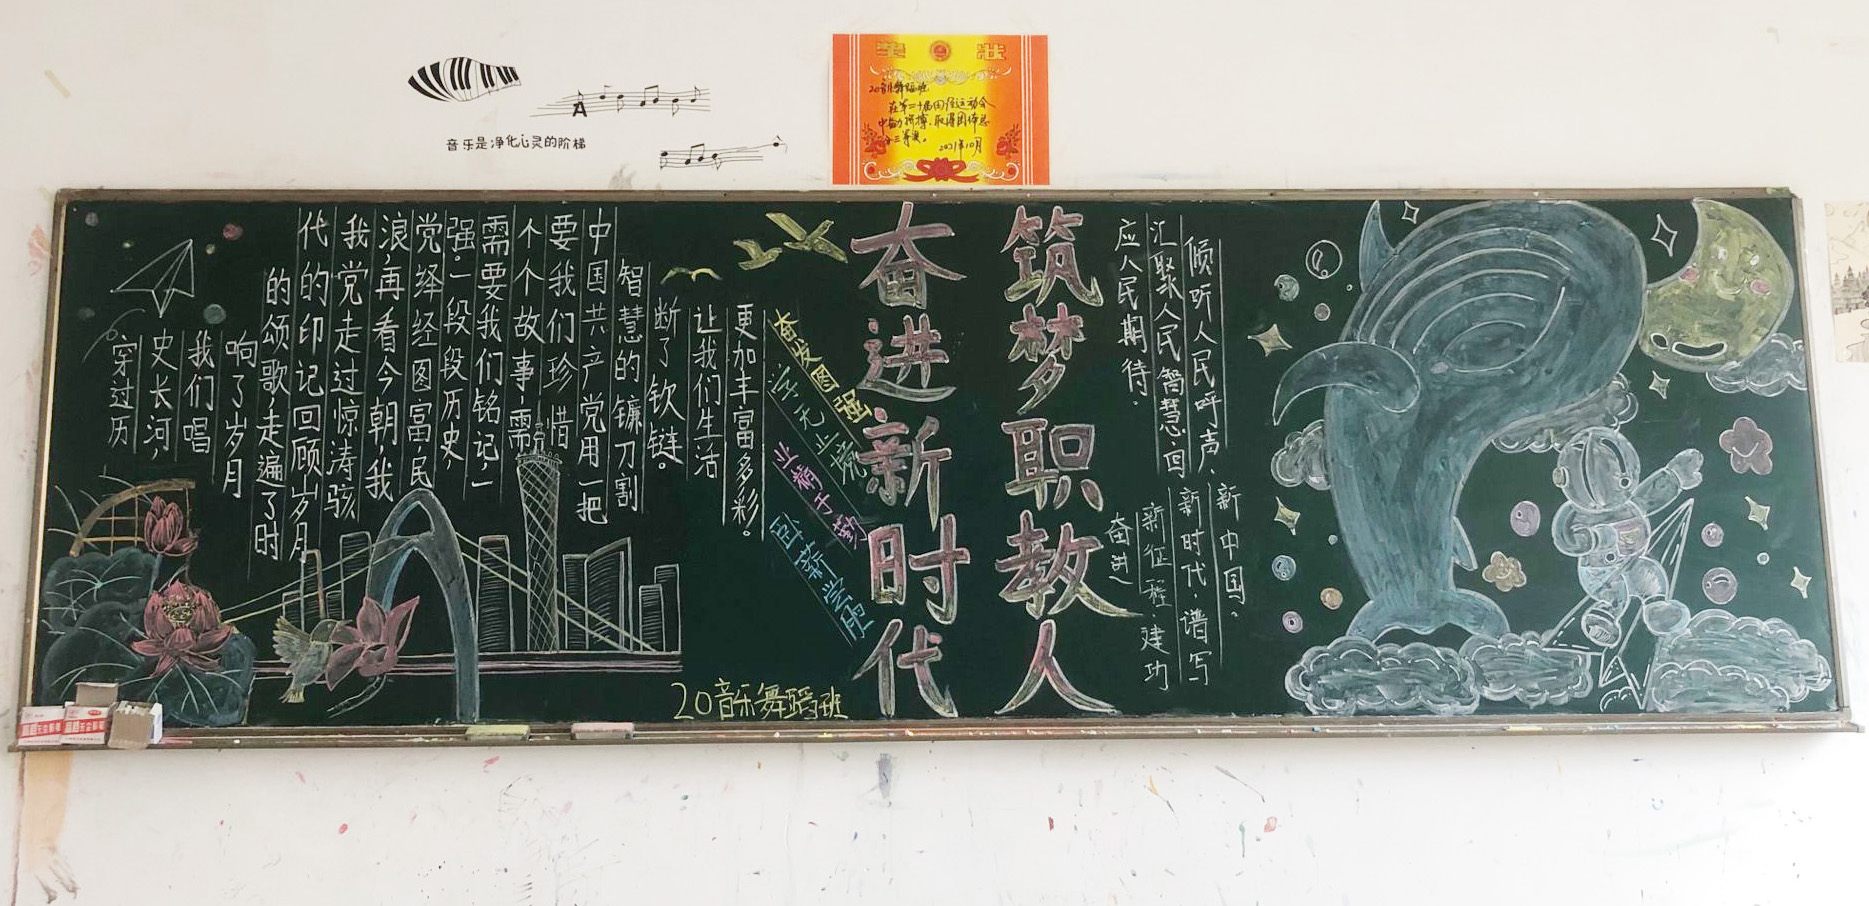 音乐是净化心灵的阶梯
奖状
20音乐舞蹈班
在第二十届田径运动会
中奋力拼搏,取得团体总
分三等奖。
2021年10月
筑梦职教人
奋进新时代
穿过历
史长河,
我们唱
响了岁月
的颂歌,走遍了时
代的印记回顾岁月
我党走过惊涛骇
浪,再看今朝,我
党绎经图富,民
强。一段段历史,
需要我们铭记,一
个个故事,需
要我们珍惜
中国共产党用一把
智慧的镰刀割
断了钦链。
让我们生活
更加丰富多彩。
奋发图强
学无止境
业精于勤
卧薪尝胆
20音乐舞蹈班
倾听人民呼声,
汇聚人民智慧,回
应人民期待.
奋进
新征程 建功
新时代,谱写
新中国。